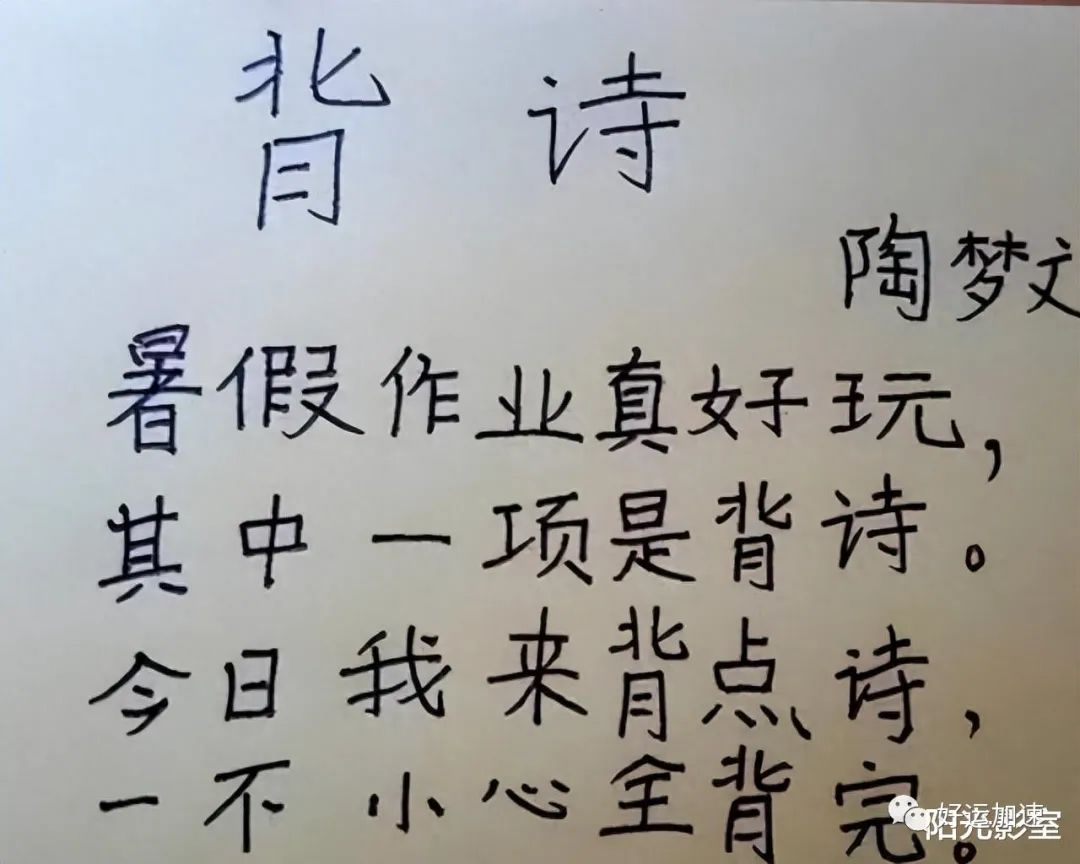 背诗
陶梦文
暑假作业真好玩，
其中一项是背诗。
今日我来背点诗，
一不小心全背完。
好运加速
阳光影室